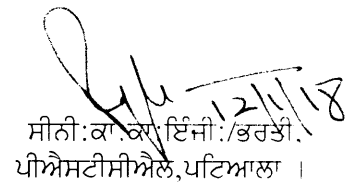 12/1/18
ਸੀਨੀ:ਕਾ:ਕਾ:ਇੰਜੀ:/ਭਰਤੀ,
ਪੀਐਸਟੀਸੀਐਲ,ਪਟਿਆਲਾ ।